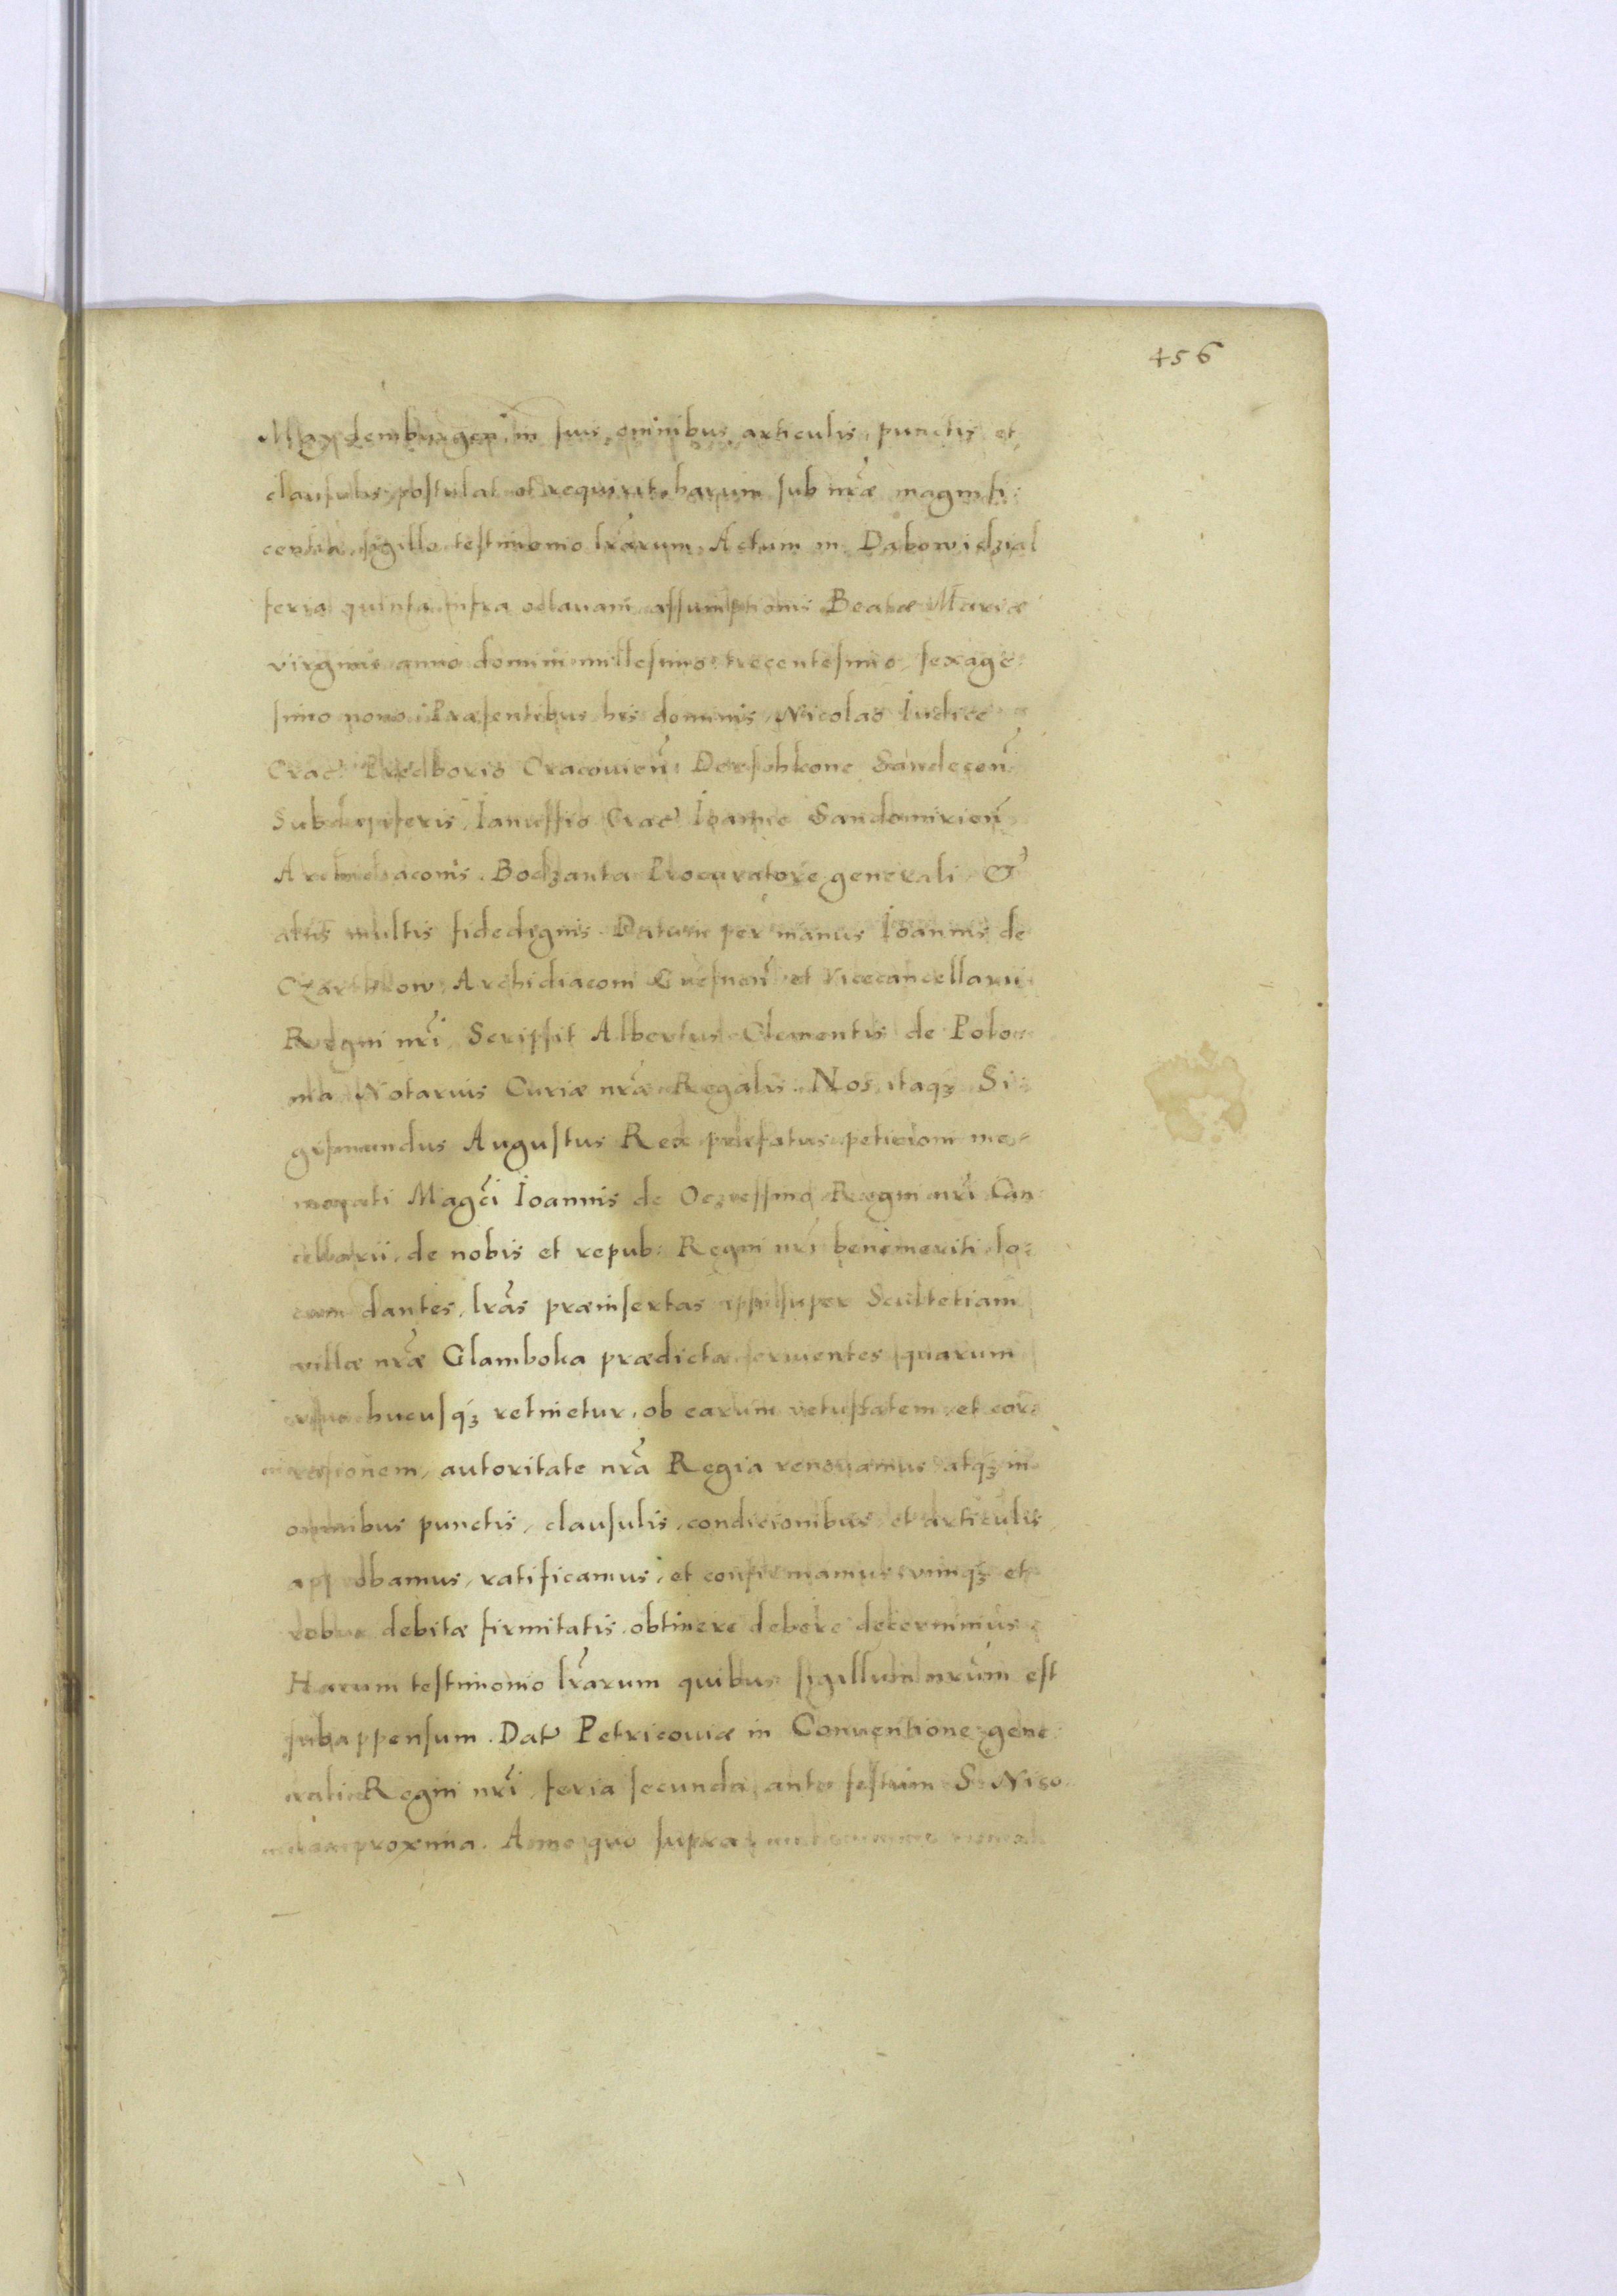 456
Maydemburgen. in suis omnibus articulis, punctis et
clausulis, postulat et requirit, harum sub nr̃æ magnifi:
centiæ sigillo testimonio lr̃arum. Actum in Dabowidzial
feria quinta infra octauam assumptionis Beatæ Mariæ
virginis anno domini millesimo trecentesimo, sexage:
simo nono. Præsentibus his dominis, Nicolao Iudice
Crac̃. Predborio Cracouien̄. Derschkone Sandecen̄.
Subdapiferis, Ianussio Crac̃ Ioanne Sandomirien̄
Archidiaconis. Bodzanta Procuratore generali &
aliis multis fidedignis. Datum per manus Ioannis de
Czarnkow, Archidiaconi Gnesnen̄ et vicecancellarii
Regni nr̃i, Scripsit Albertus Clementis de Polo:
nia Notarius Curiæ nr̃æ Regalis. Nos itaqꝫ Si:
gismundus Augustus Rex præfatus peticioni me:
morati Mag̃ci Ioannis de Oczessino Regni nr̃i Can
cellarii, de nobis et repub: Regni nr̃i benemeriti lo:
cum dantes, lr̃as præinsertas super Scultetiam
villæ nr̃æ Glamboka prædictæ seruientes quarum
usus hucusqꝫ retinetur, ob earum vetustatem et cor:
rosionem, autoritate nr̃a Regia renouamus atqꝫ in
omnibus punctis, clausulis, condicionibus et articulis
approbamus, ratificamus, et confirmamus vimqꝫ et
robur debitæ firmitatis obtinere debere decernimus
Harum testimonio lr̃arum quibus sigillum nr̃um est
subappensum. Dat̃ Petricouiæ in Conuentione gene
rali Regni nr̃i, feria secunda ante festum S. Nico
lai proxima. Anno quo supra